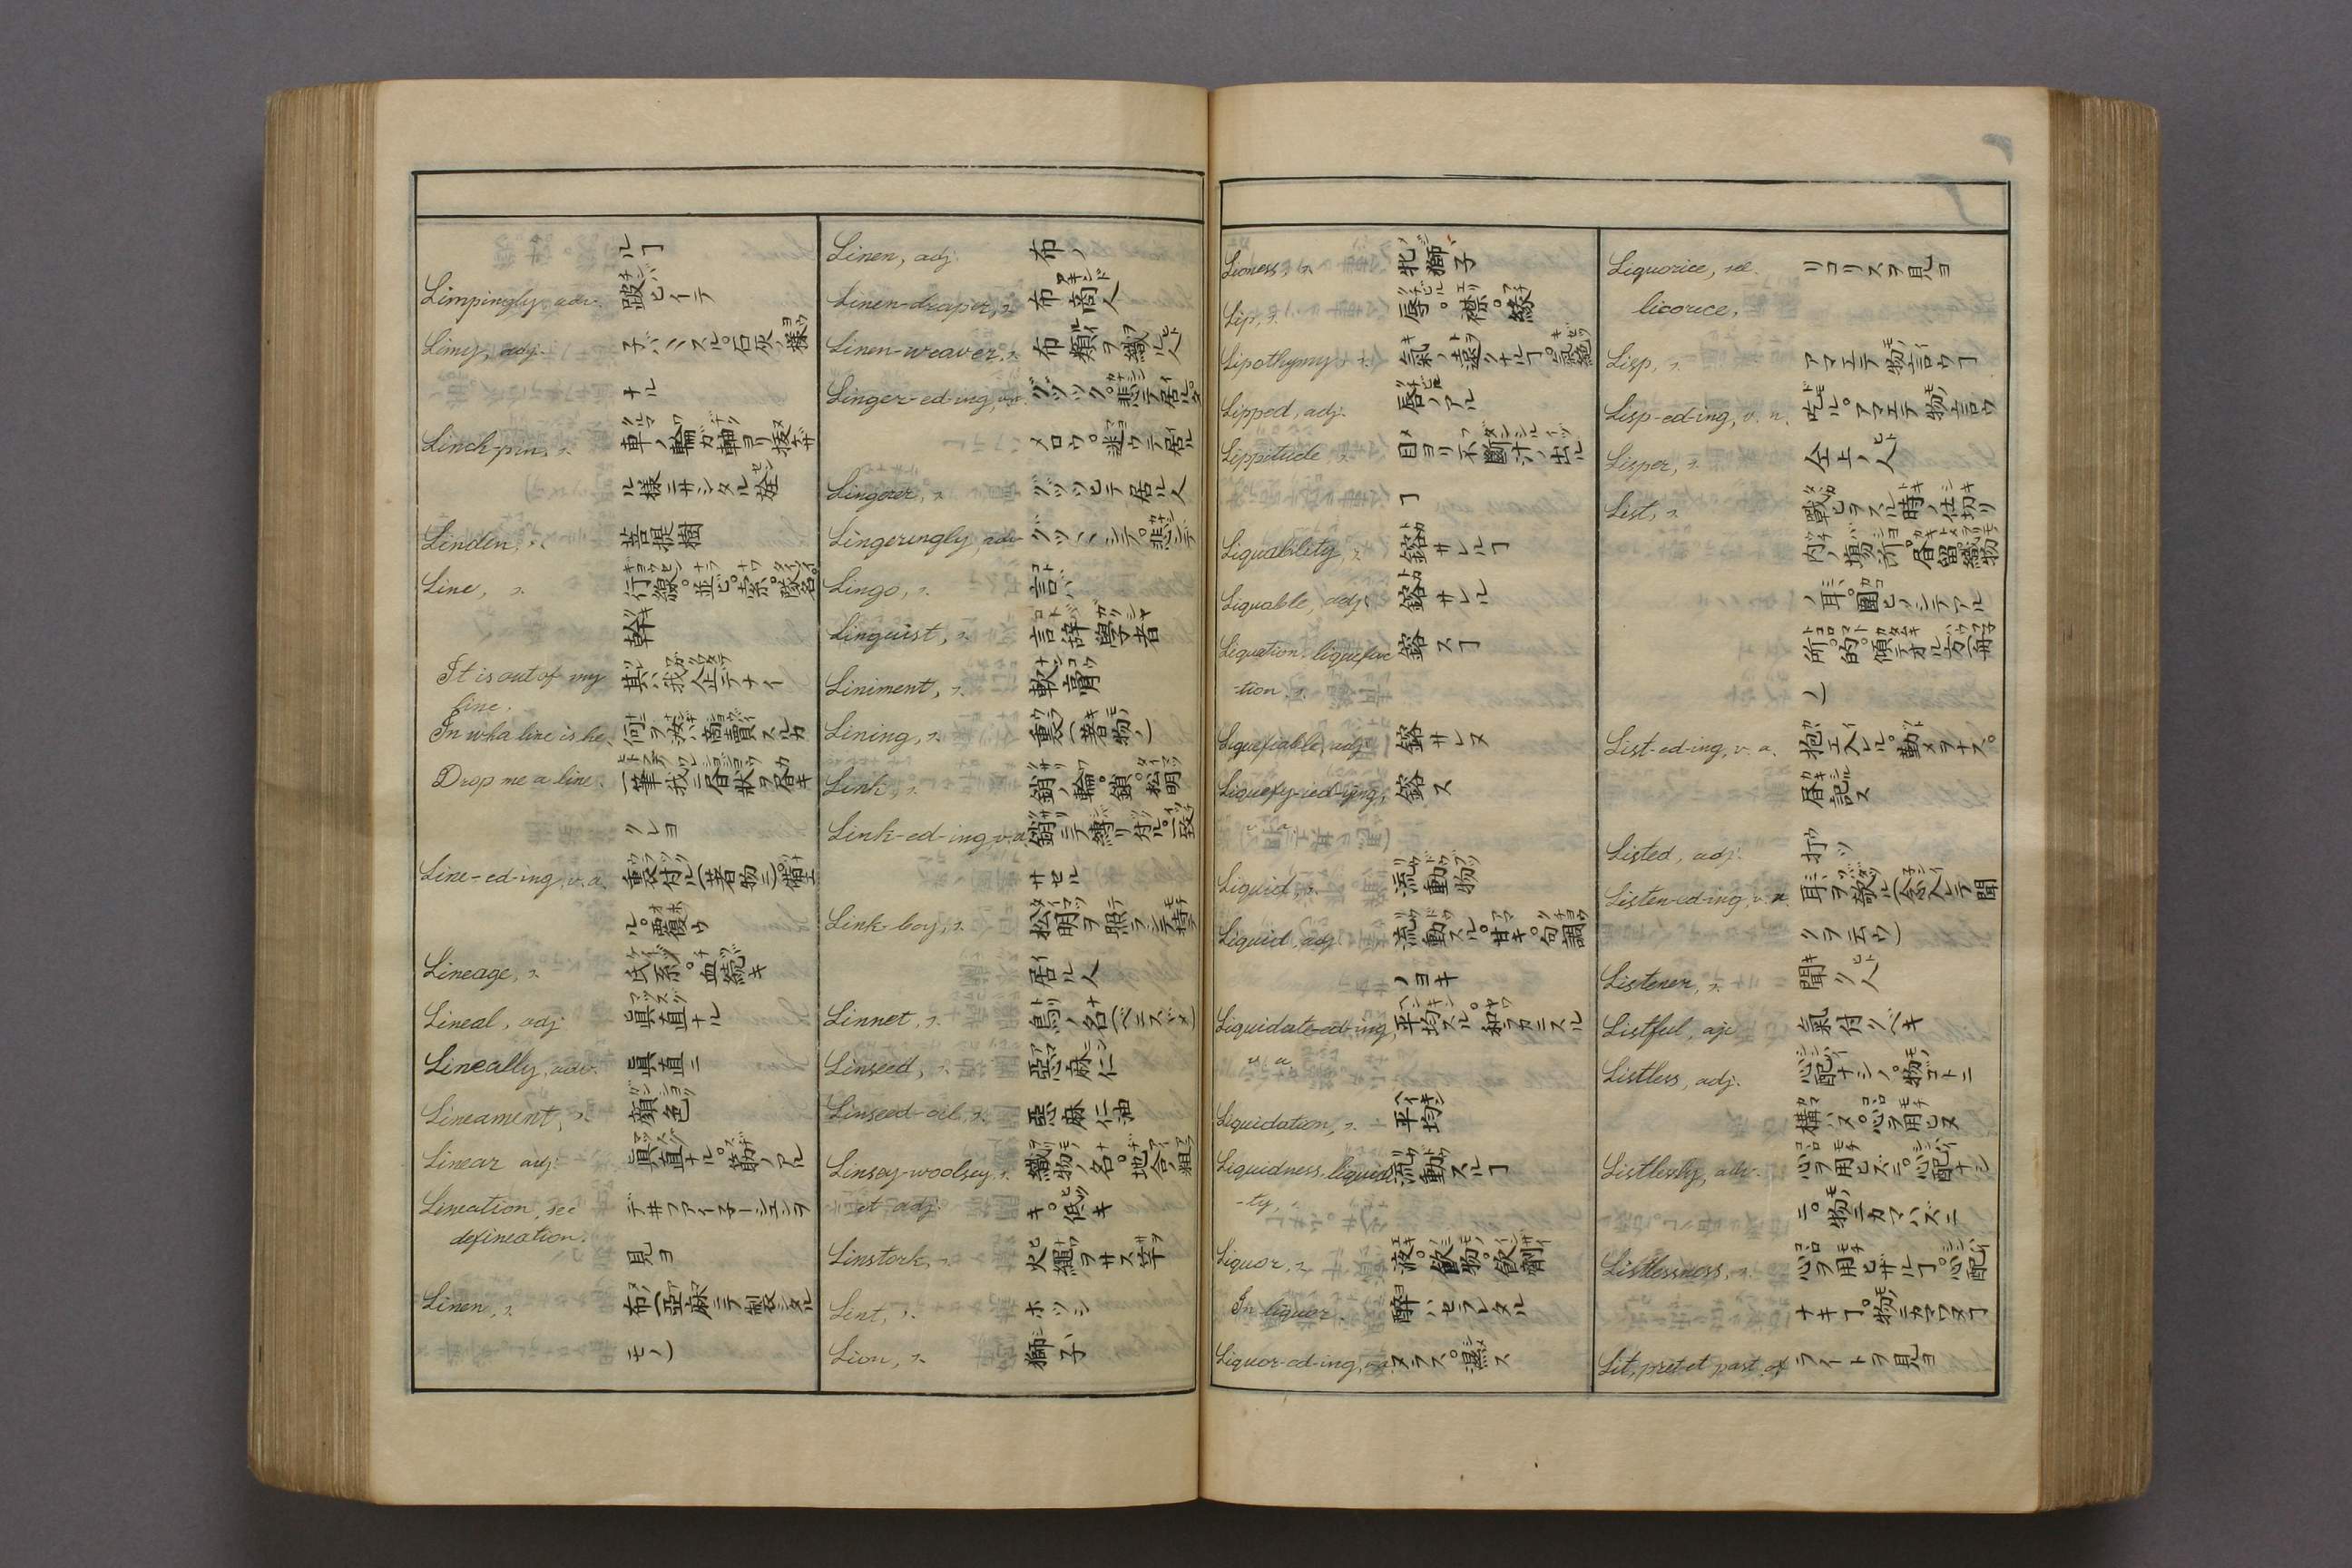 ルヿ
Limpingly, adv. 跛ヒイテ
Limy, adj. 子バ〻スル。石灰ノ様
ナル
Linch-pin, n. 車ノ輪ガ軸ヨリ抜ケザ
ル様ニサシタル栓
Linden, n. 菩提樹
Line, n. 行線。並ビ。索。隊名。
幹
It is out of my 其ハ我企テナイ
line.
In wha line is he, 何ヲ彼ハ商賣スルカ
Drop me a line. 一筆我ニ昏状ヲ昏キ
クレヨ
Line-ed-ing, v.a. 裏付ル(着物ニ)備エ
ル。覆ウ
Lineage, n. 氏系。血続キ
Lineal, adj 眞直ナル
Lineally, adv. 眞直ニ
Lineament, n. 顔色
Linear adj. 眞直ナル。筋ノアル
Lineation, see
defineation.
見ヨ
Linen, n. 布(亞麻ニテ製シタル
モノ)
Linen, adj. 布ノ
Linen-draper, n. 布商人
Linen-weaver, n. 布類ヲ織ル人
Linger-ed-ing, v.n. グツツク。悲テ居ル。タ
メロウ。迷ウテ居ル
Lingerer, n. グツツヒテ居ル人
Lingeringly, adv グツ〻シテ。悲シテ
Lingo, n. 言バ
Linguist, n. 言辞學者
Liniment, n. 軟膏
Lining, n. 裏(着物ノ)
Link, n. 鎖ノ輪。鎖。松明
Link-ed-ing, v.a. 鎖ニテ縛リ付ル。一致
サセル
Link-boy, n. 松明ヲ照ラシテ持
居ル人
Linnet, n. 鳥ノ名(ベニスヾメ)
Linseed, n. 亞麻仁
Linseed-oil, n. 亞麻仁油
Linsey-woolsey, n. 織物ノ名。地合ノ粗
et adj. キ。低キ
Linstork, n. 火繩ヲサス竿
Lint, n. ホツシ
Lion, n. 獅子
Lioness, n. 牝獅子
Lip, n. 唇。襟。縁
Lipothymy, n. 氣ノ遠クナルヿ。氣絶
Lipped, adj. 唇ノアル
Lippitude, n. 目ヨリ不斷汁ノ出ル
ヿ
Liquability, n. 鎔サレルヿ
Liquable, adj. 鎔サレル
Liquation. liquefac 鎔スヿ
-tion. n.
Liquefiable, adj. 鎔サレヌ
Liquefy-ied-ying, 鎔ス
v. a.
Liquid, n. 流動物
Liquid, adj. 流動スル。甘キ。句調
ノヨキ
Liquidate-ed-ing, 平均スル。和ラカニスル
v. a.
Liquidation, n. 平均
Liquidness. liquidi 流動スルヿ
-ty, n.
Liquor, n. 液。飲物。飲劑
In liquor. 醉ハセラレタル
Liquor-ed-ing, v.a. ヌラス。濕ス
Liquorice, see. リコリスヲ見ヨ
licorice.
Lisp, n. アマエテ物言ウヿ
Lisp-ed-ing, v. n. 吃ル。アマエテ物言ウ
Lisper, n. 仝上ノ人
List, n. 戰ヒヲスル時ノ仕切リ
内ノ場所。昏留。織物
ノ耳。圍ヒノシテアル
所。的。傾テオル方(舟
ノ)
List-ed-ing, v. a. 抱エ入レル。勤メヲナス。
昏記ス
Listed, adj.
Listen-ed-ing, v. n. 耳ヲ欹ル(念入レテ聞
クヲ云ウ)
Listener, n. 聞ク人
Listful, aje 氣付クベキ
Listless, adj. 心配ナシノ。物ゴトニ
構ハヌ。心ヲ用ヒヌ
Listlessly, adv. 心ヲ用ヒズニ。心配ナシ
ニ。物ニカマハズニ
Listlessness, n. 心ヲ用ヒザルヿ。心配
ナキヿ。物ニカマワヌヿ
Lit, pret et past. of ライトヲ見ヨ